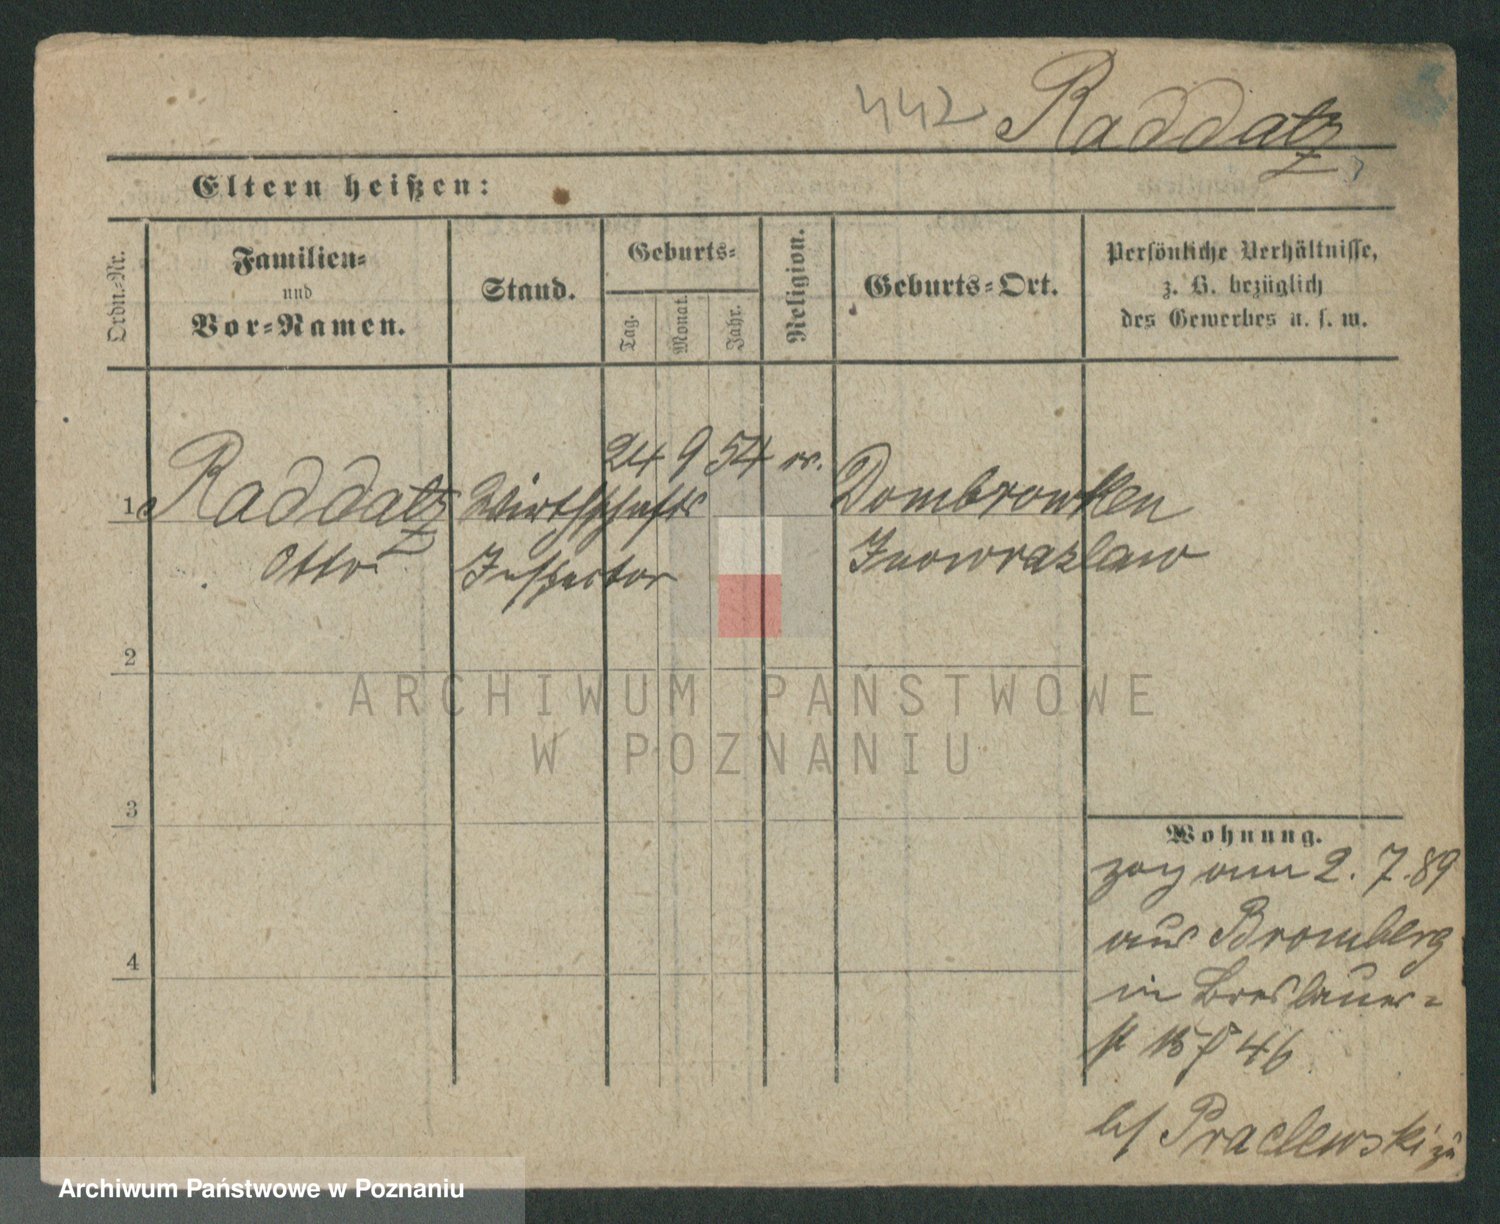 442 Raddatz
Eltern heißen:
Ordn.-Nr.
Familien-
und
Vor-Namen.
Stand.
Geburts-
Tag.
Monat.
Jahr.
Religion.
Geburts-Ort.
Persönliche Verhältnisse,
z. B. bezüglich
des Gewerbes u. s. w.
24 9 54 ev.
1 Raddatz Wirthschafts Dombrowken
Otto Inspector Inowrazlaw
2
3
4
Wohnung.
zog am 2. 7. 89
aus Bromberg
in Breslauer-
st
46
b/ Praclewski zu
ARCHIWUM PAŃSTWOWE
W POZNANIU
Archiwum Państwowe w Poznaniu